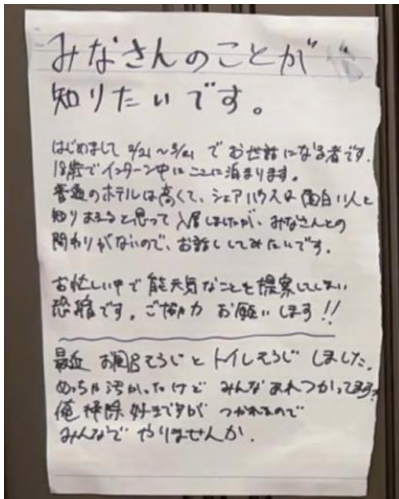 みなさんのことが
知りたいです。
はじめまして 2/21〜3/21 でお世話になる者です。
18歳でインターン中にここに泊まります。
普通のホテルは高くて、シェアハウスは面白い人と
知り合えると思って入居しましたが、みなさんとの
関わりがないので、お話ししてみたいです。
お忙しい中で能天気なことを提案してしまい
恐縮です。ご協力お願いします!!
最近 お風呂そうじとトイレそうじしました。
めっちゃ汚かったけど みんなあれつかってます?
俺掃除好きですが つかれるので
みんなで やりませんか.